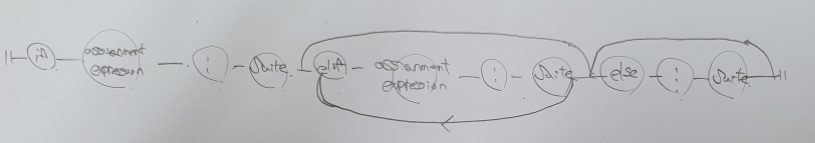 if assignment expression : suite elif assignment expression : suite else : suite